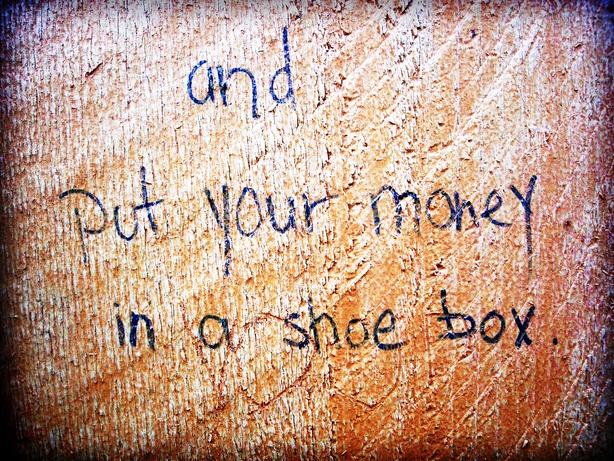 and
put your money
in a shoe box.